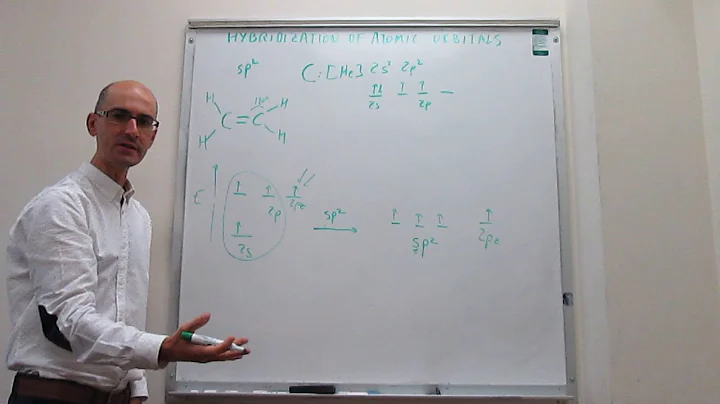 HYBRIDIZATION OF ATOMIC ORBITALS
sp² C: [He] 2s² 2p²
2s 2p
H H
C = C
H H
E 2p 2pz
2s
sp²
sp² 2pz